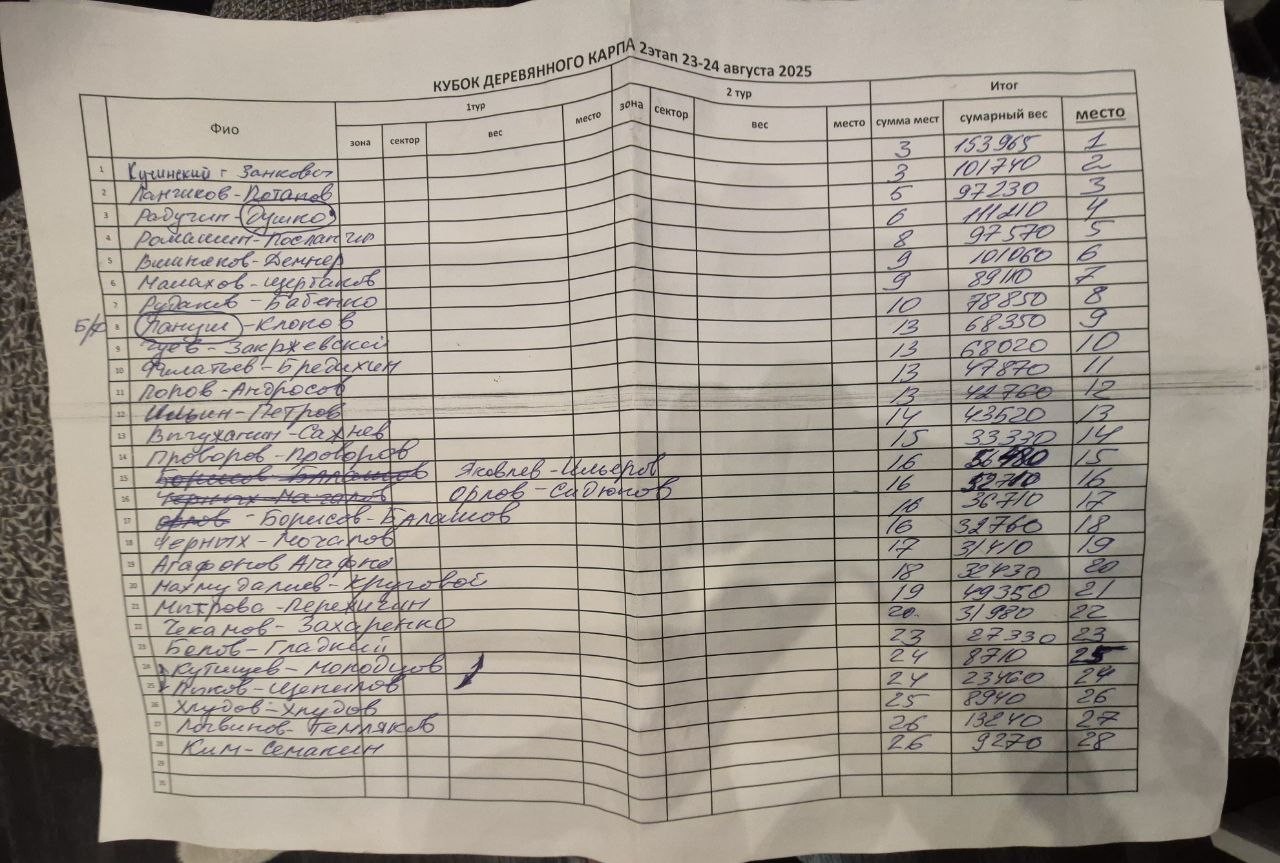 КУБОК ДЕРЕВЯННОГО КАРПА 2этап 23-24 августа 2025
Фио 1тур 2 тур Итог
зона сектор вес место зона сектор вес место сумма мест сумарный вес место
1 Кучинский г Занкович 3 153965 1
2 Лангиков-Потапов 3 101740 2
3 Радучин-Душко 5 97230 3
4 Ромашин-Посланчы 6 111210 4
5 Вишняков-Демнер 8 97570 5
6 Малахов-Щербаков 9 101060 6
7 Рудаков-Бабенко 9 89110 7
Б/Ф 8 Пануш-Клопов 10 78850 8
9 Гуев-Закржевский 13 68350 9
10 Филатьев-Бредихин 13 68020 10
11 Попов-Андросов 13 47870 11
12 Ильин-Петров 13 42760 12
13 Вычужанин-Сахнев 14 43520 13
14 Проворов-Проворов 15 33330 14
15 Борисов-Балашов Яковлев-Ильеров 16 36980 15
16 Черных-Мочалов Орлов-Сидюков 16 32710 16
17 Орлов - Борисов-Балашов 16 36710 17
18 Черных-Мочалов 16 32760 18
19 Агафонов Агафоно 17 31410 19
20 Махмудалиев-Круговой 18 32430 20
21 Митрова-Перехичин 19 49350 21
22 Чеканов-Захаренко 20 31980 22
23 Белов-Гладкий 23 27330 23
24 Кутищев-Молодцов 24 8710 25
25 Жуков-Щепилов 24 23460 24
26 Хлудов-Хлудов 25 8940 26
27 Логвинов-Темляков 26 13240 27
28 Ким-Семакин 26 9270 28
29
30